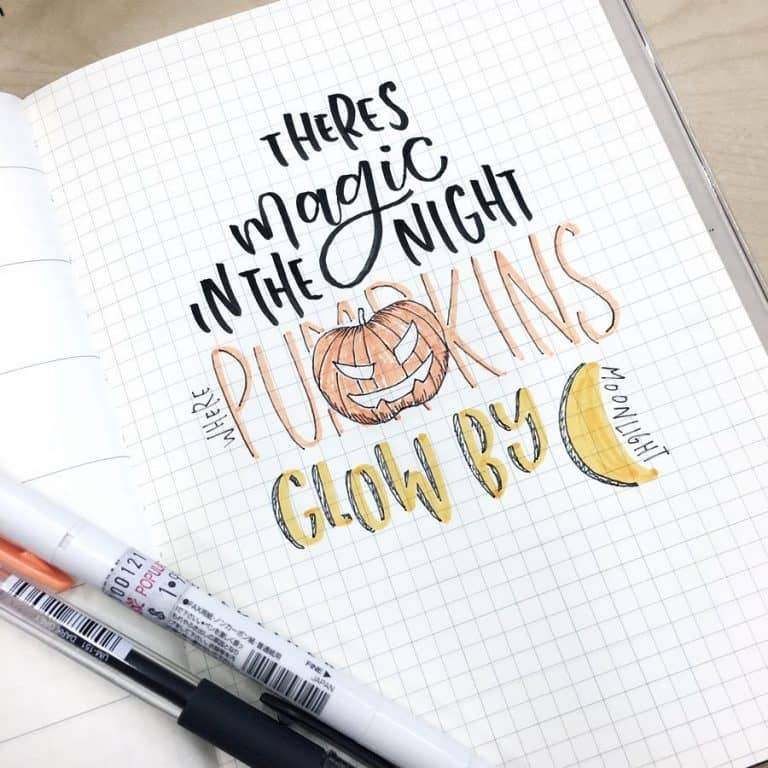 THERES
magic
IN THE NIGHT
WHERE PUMPKINS
GLOW BY
MOONLIGHT
000121
POPULE
$ 1.9
FINE
JAPAN
UM-151 DARK GRAY